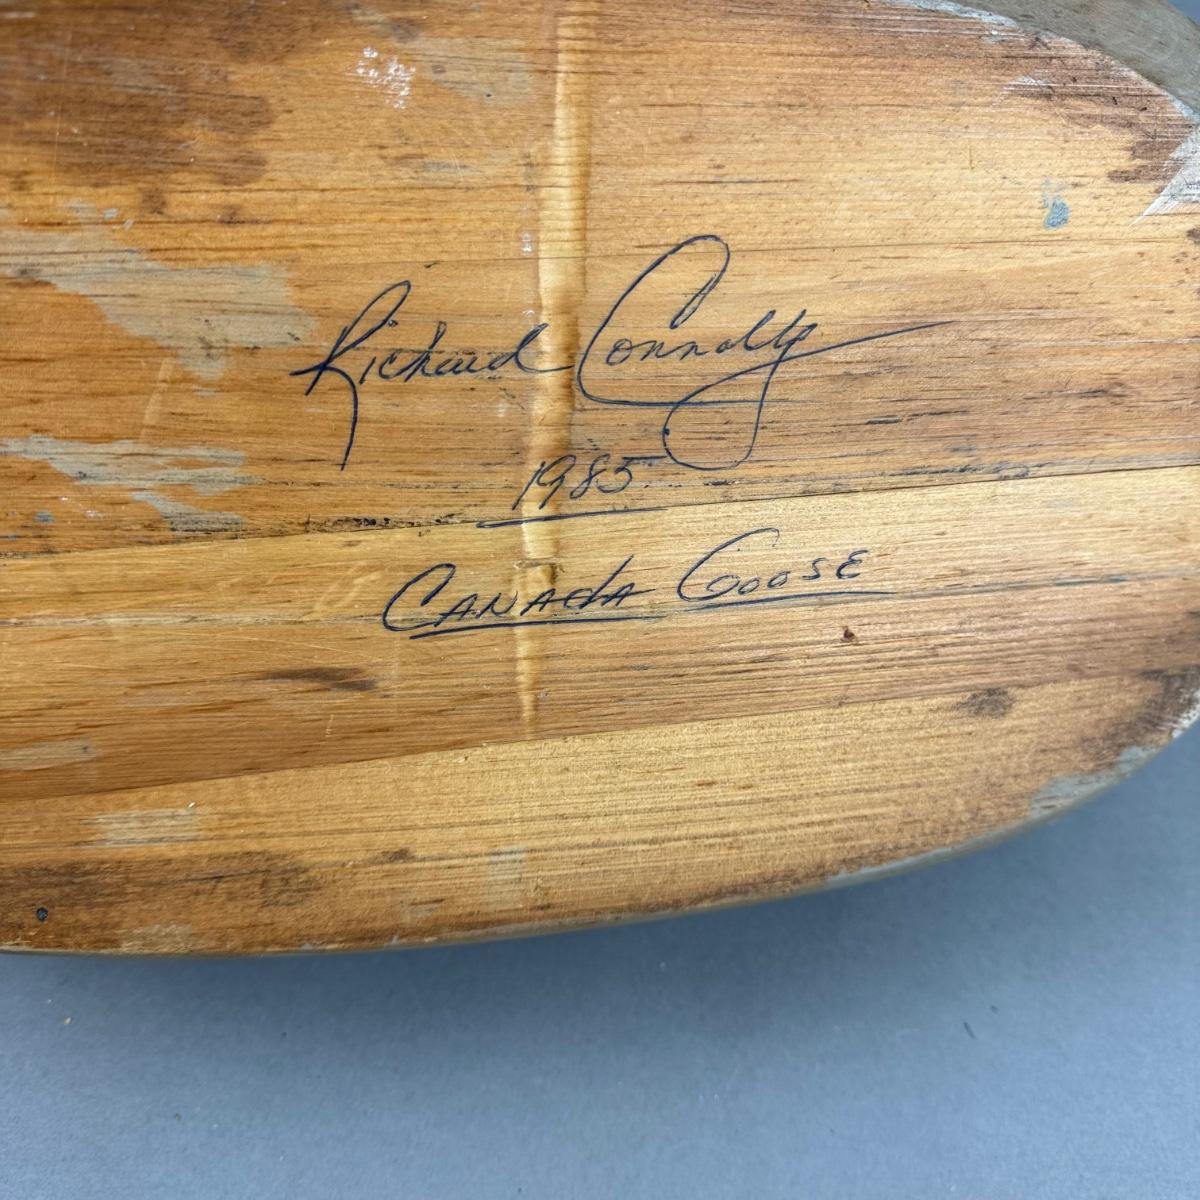 Richard Connolly
1985
CANADA GOOSE